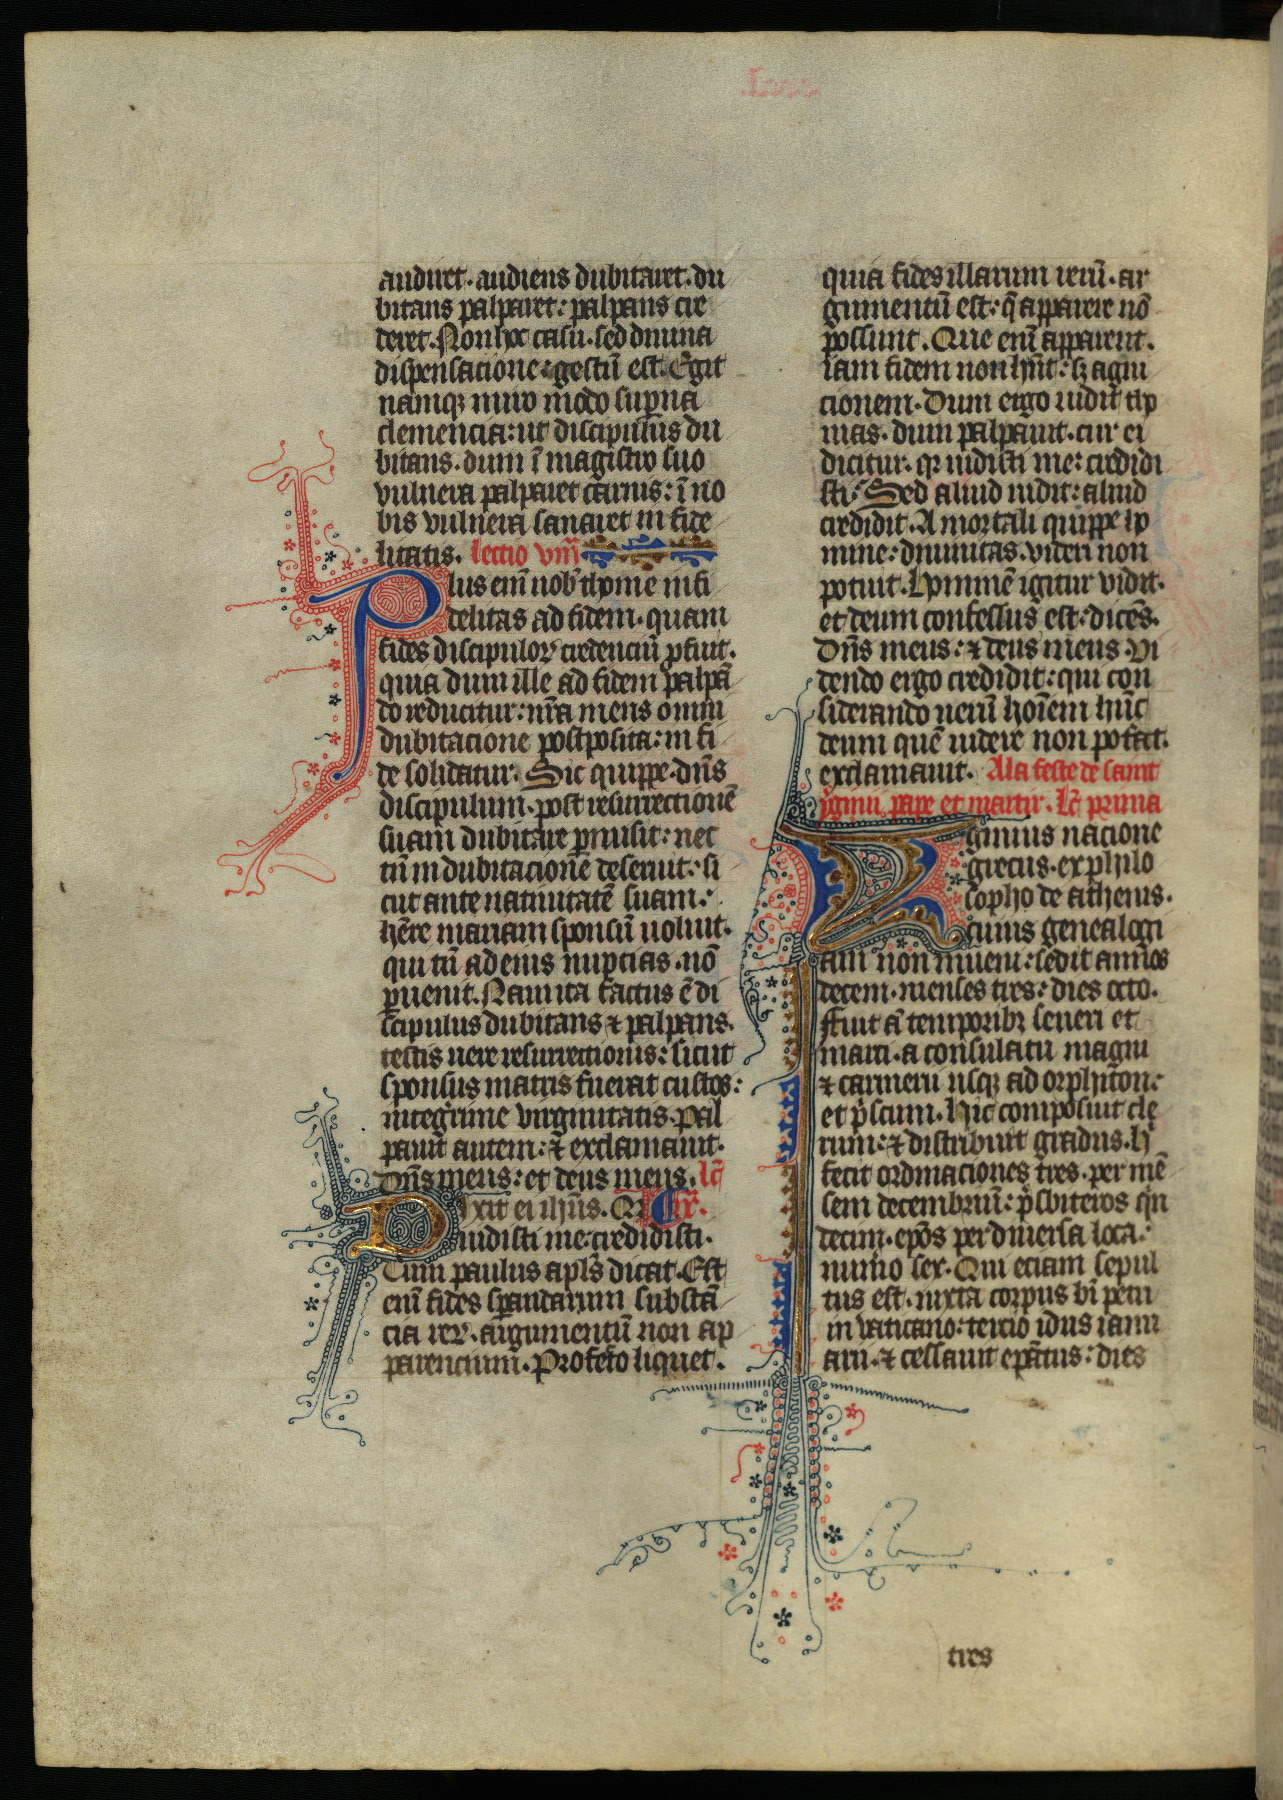 audiret. audiens dubitaret. du
bitans palparet: palpans cre
deret. Non hoc casu. sed diuina
dispensacione: gestū est. Egit
namqꝫ miro modo suꝑna
clemencia: ut discipulus du
bitans. dum ī magistro suo
vulnera palparet carnis: ī no
bis vulnera sanaret in fide
litatis. lectio vııı̄
Plus enī nobꝭ thome infi
delitas ad fidem. quam
fides discipuloꝝ credenciū ꝓfuit.
quia dum ille ad fidem palpā
do reducitur: nr̄a mens omni
dubitacione postposita: in fi
de solidatur. Sic quippe dn̄s
discipulum. post resurrectionē
suam dubitare ꝑmisit: nec
tn̄ in dubitacione deseruit: si
cut ante natiuitatē suam:
hēre mariam sponsū uoluit.
qui tn̄ ad eius nupcias. nō
ꝑuenit. Nam ita factus ē di
scipulus dubitans ⁊ palpans.
testis uere resurrectionis: sicut
sponsus matris fuerat custos:
integerrime virginitatis. Pal
pauit autem: ⁊ exclamauit.
Dn̄s meus: et deus meus. lc̄
Dixit ei ih̄us. Qꝛ ıx.
uidisti me: credidisti.
Cum paulus apl̄s dicat. Est
enī fides sꝑandarum substā
cia reꝝ. argumentū non ap
parencium. Profecto liquet.
quia fides illarum rerū. ar
gumentū est: q̄ apparere nō
possunt. Que enī apparent.
iam fidem non hn̄t: sꝫ agni
cionem. Dum ergo uidit tho
mas. dum palpauit. cur ei
dicitur. qꝛ uidisti me: credidi
sti: Sed aliud uidit: aliud
credidit. A mortali quippe ho
mine: diuinitas. videri non
potuit. Hominē igitur vidit.
et deum confessus est: dicēs.
Dn̄s meus: ⁊ deus meus. Vi
dendo ergo credidit: qui con
siderando uerū hoīem hūc
deum quē uidere non poterat.
exclamauit. Alia feste de sancti
ygmii pape et martir. Lc̄ prima
Iginius nacione
grecus. ex philo
sopho de athenis.
cuius genealogi
am non inueni: sedit annos
decem. menses tres: dies octo.
Ffuit ā temporibꝫ seueri et
marci. a consulatu magni
⁊ carmeni usqꝫ ad orphiton:
et pͥscum. Hic composuit cle
rum: ⁊ distribuit gradus. hͥ
fecit ordinaciones tres. per mē
sem decembriū: pͥsbiteros qͥn
decim. epōs per diuersa loca:
numͦo sex. Qui eciam sepul
tus est. iuxta corpus bī petri
in vaticano: tercio idus ianu
arii. ⁊ cessauit epātus: dies
tres